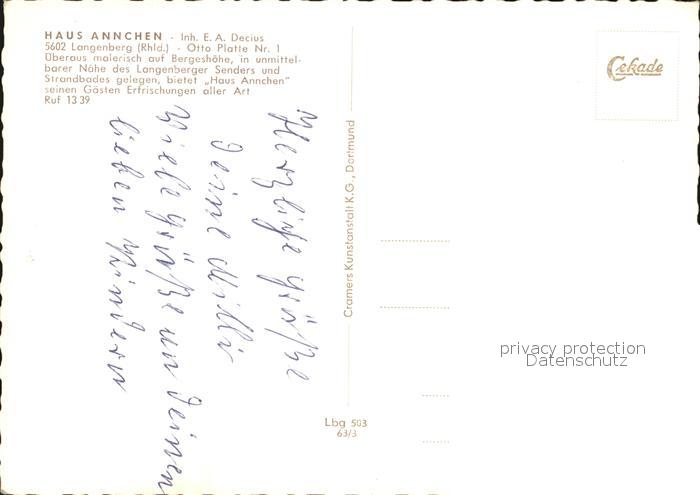 HAUS ANNCHEN - Inh. E. A. Decius
5602 Langenberg (Rhld.) - Otto Platte Nr. 1
Überaus malerisch auf Bergeshöhe, in unmittel-
barer Nähe des Langenberger Senders und
Strandbades gelegen, bietet „Haus Annchen"
seinen Gästen Erfrischungen aller Art
Ruf 13 39
Herzliche Grüße
Deine Milli
Viele Grüße an Deinen
lieben Kindern
Cramers Kunstanstalt K.G., Dortmund
Lbg 503
63/3
Cekade
privacy protection
Datenschutz